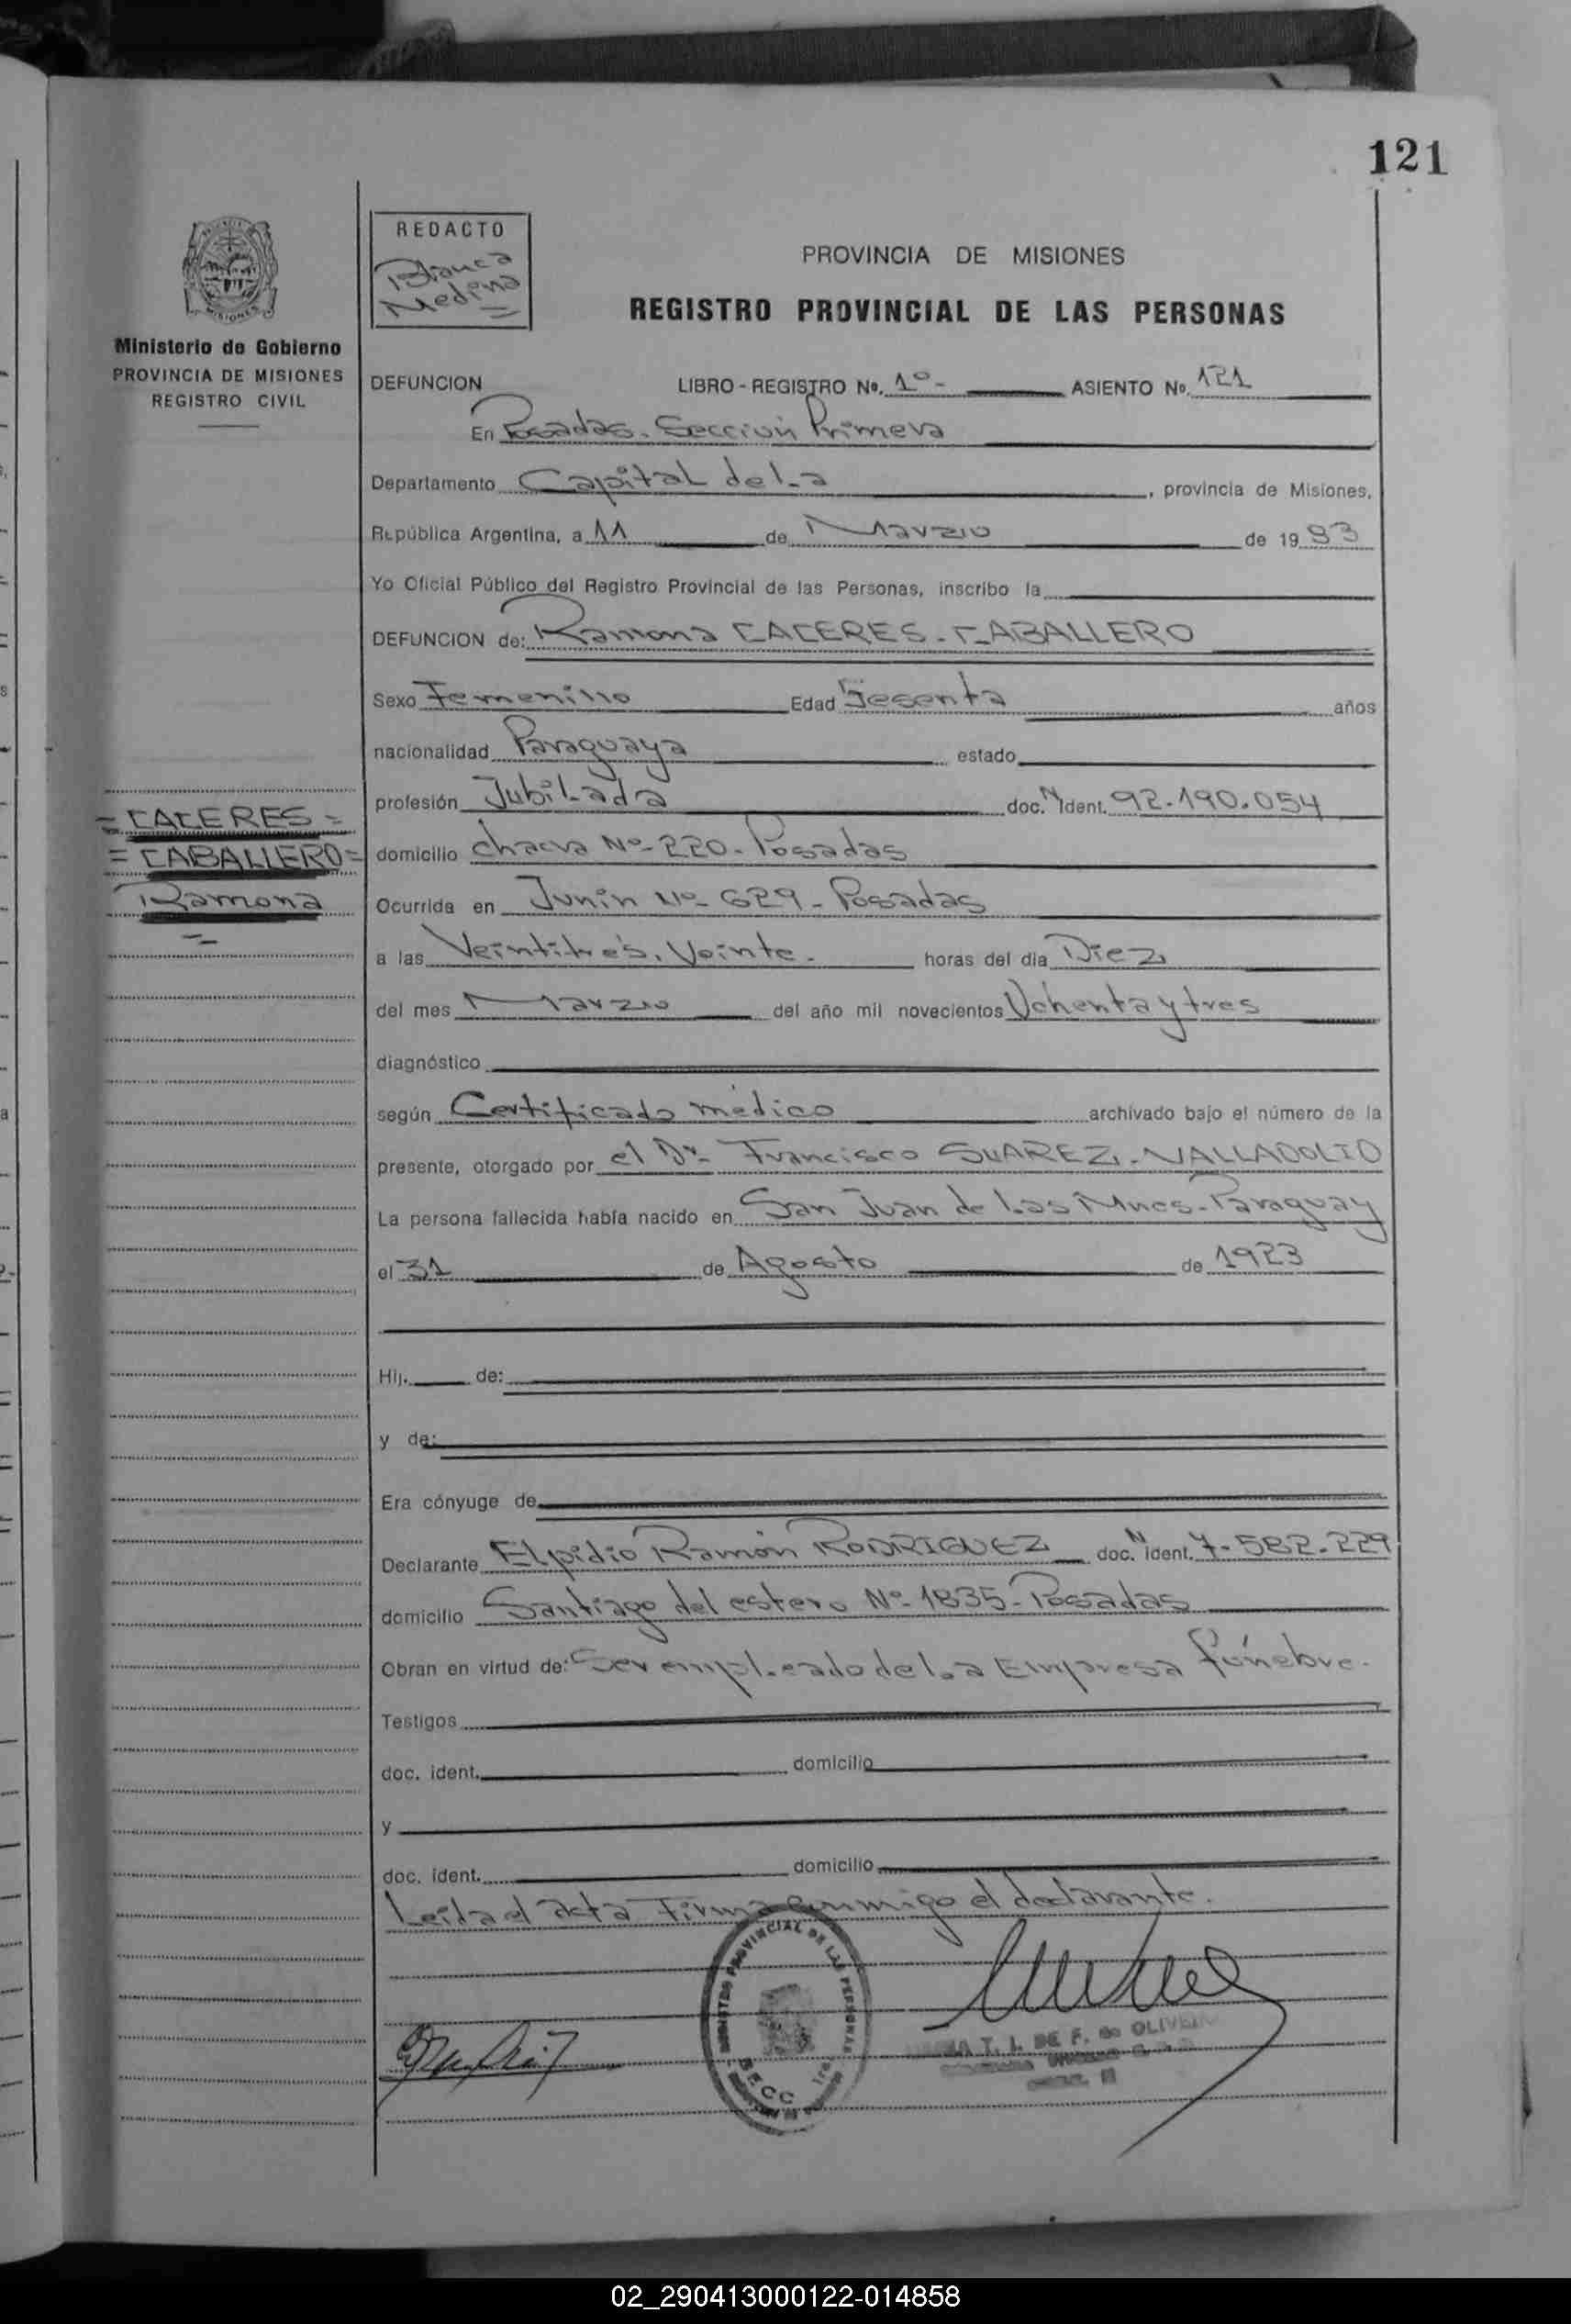 121
REDACTO
Blanca
Medina
PROVINCIA DE MISIONES
REGISTRO PROVINCIAL DE LAS PERSONAS
Ministerio de Gobierno
PROVINCIA DE MISIONES
REGISTRO CIVIL
DEFUNCION LIBRO - REGISTRO No. 1º - ASIENTO No. 121
En Posadas. Sección Primera
Departamento Capital de La , provincia de Misiones,
República Argentina, a 11 de Marzo de 19 83
Yo Oficial Público del Registro Provincial de las Personas, inscribo la
DEFUNCION de: Ramona CACERES - CABALLERO
Sexo Femenino Edad Sesenta años
nacionalidad Paraguaya estado
profesión Jubilada doc. N ident. 92.190.054
= CACERES =
= CABALLERO =
Ramona
domicilio chacra Nº 220 - Posadas
Ocurrida en Junin Nº 629 - Posadas
a las Veintitrés, Veinte. horas del día Diez
del mes Marzo del año mil novecientos Ochenta y tres
diagnóstico
según Certificado médico archivado bajo el número de la
presente, otorgado por el Dr. Francisco SUAREZ - VALLADOLID
La persona fallecida había nacido en San Juan de Las Mnes - Paraguay
el 31 de Agosto de 1923
Hij. de:
y de:
Era cónyuge de
Declarante Elpidio Ramón RODRIGUEZ doc. N ident. 7.582.229
domicilio Santiago del estero Nº 1835 - Posadas
Obran en virtud de: Ser empleado de La Empresa fúnebre.
Testigos
doc. ident. domicilio
y
doc. ident. domicilio
Leída el acta Firma conmigo el declarante.
REGISTRO PROVINCIAL DE LAS PERSONAS
SECC 1ra
T. I. DE F. de OLIVEIRA
02_290413000122-014858